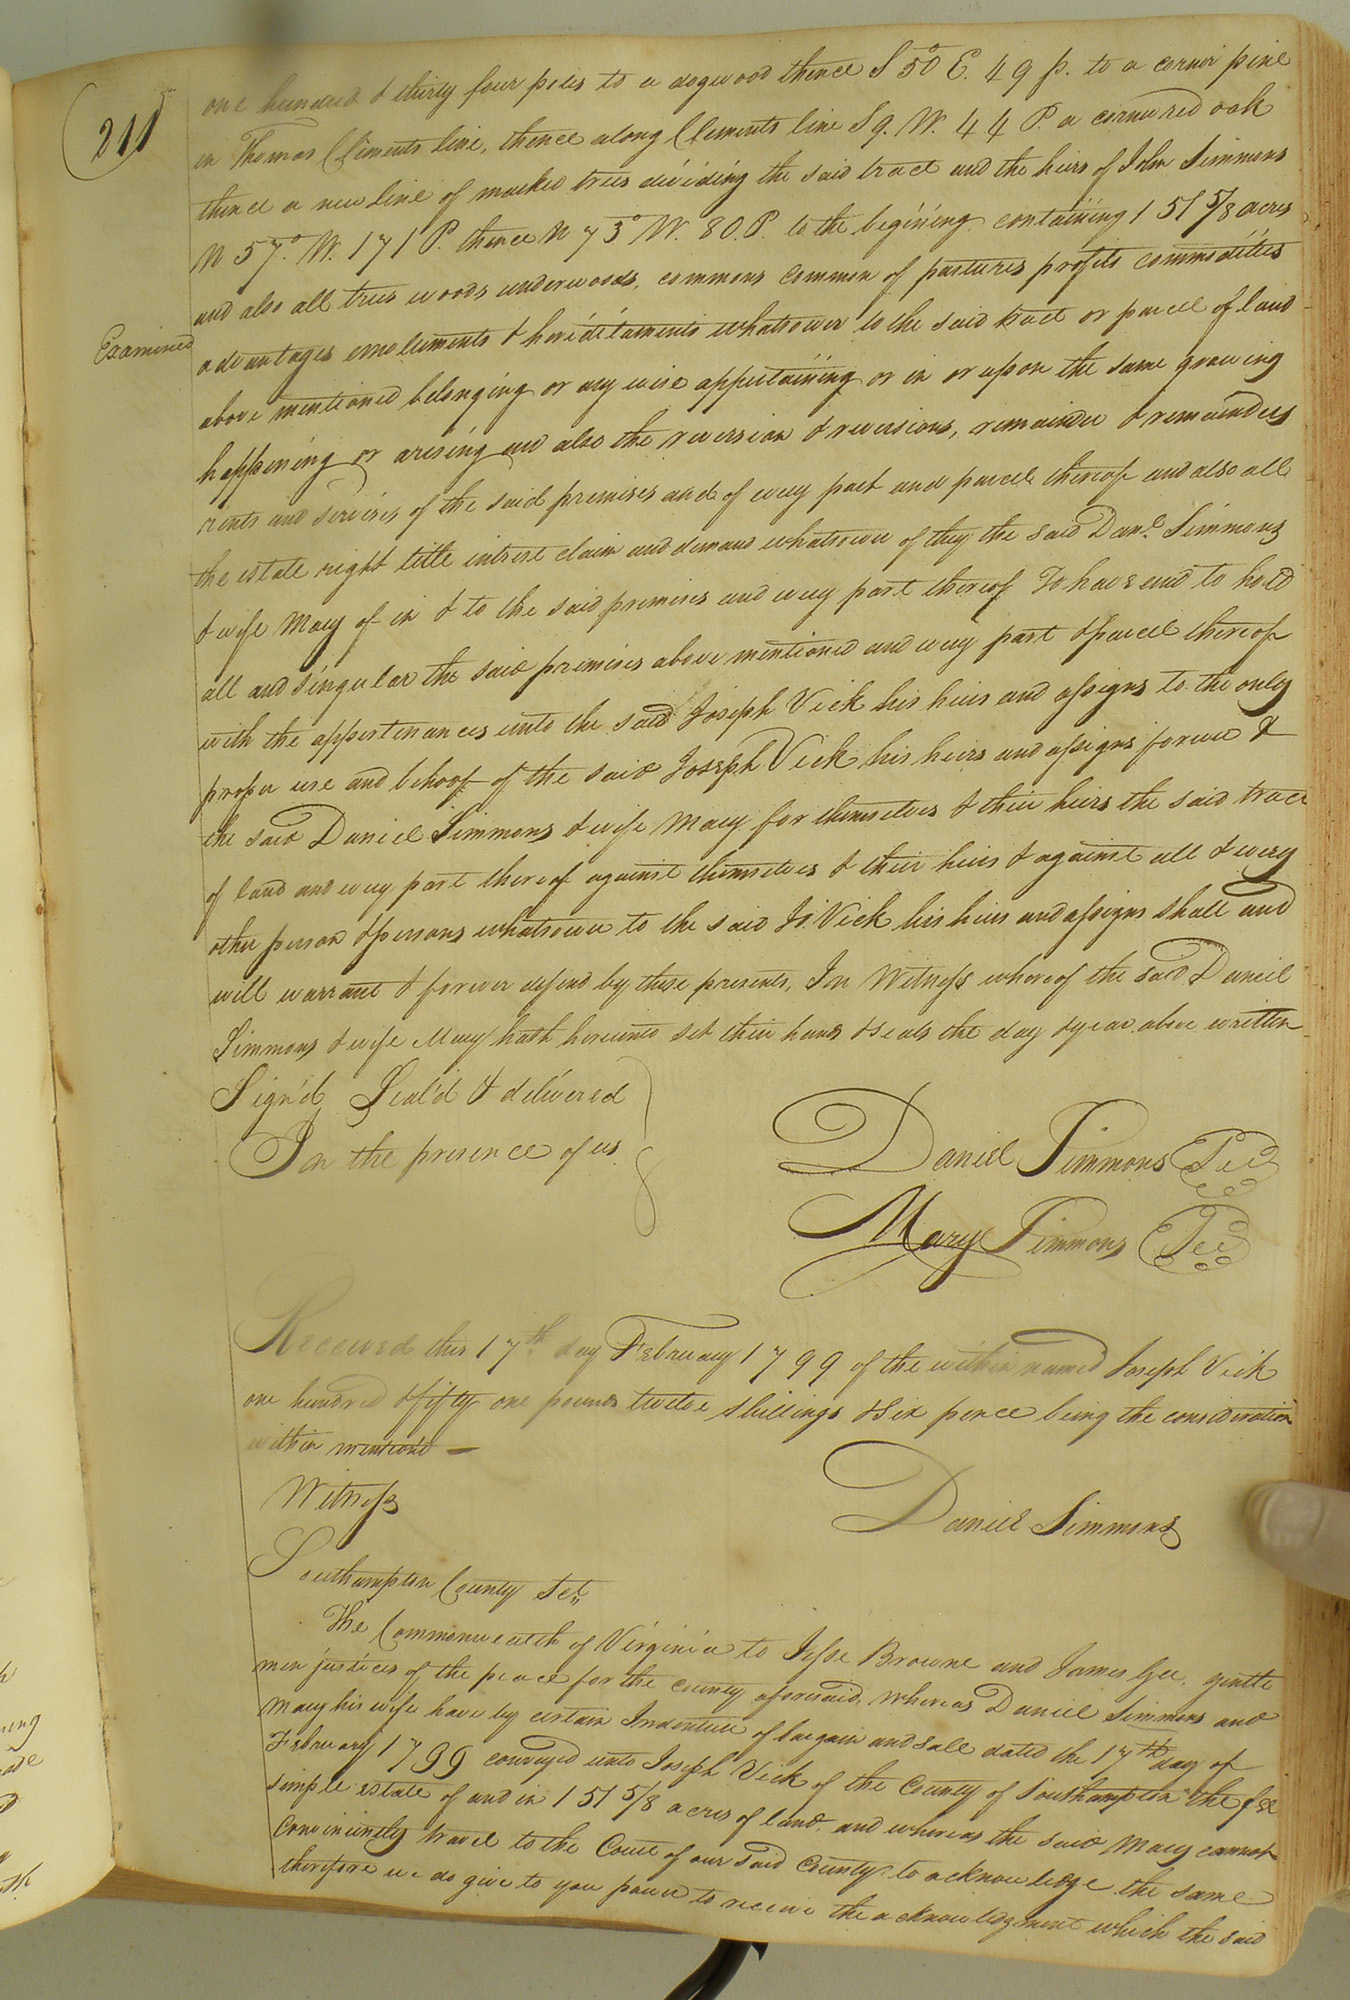 211
one hundred & thirty four poles to a dogwood thence S 50° E. 49 p. to a corner pine
in Thomas Clements line, thence along Clements line S 9. W. 44 P. a corner red oak
thence a new line of marked trees dividing the said tract and the heirs of John Simmons
N 57°. W. 171 P. thence N 73° W. 80. P. to the begining containing 151 5/8 acres
and also all trees woods underwoods, commons common of pastures profits commodities
Examined
advantages emoluments & hereditaments whatsoever to the said tract or parcel of land
above mentioned belonging or any wise appertaining or in or upon the same growing
happening or arising and also the reversion & reversions, remainder & remainders
rents and services of the said premises and of every part and parcel thereof and also all
the estate right title interest claim and demand whatsoever of they the said Danl. Simmons
& wife Mary of in & to the said premises and every part thereof To have and to hold
all and singular the said premises above mentioned and every part & parcel thereof
with the appertinances unto the said Joseph Vick his heirs and assigns to the only
proper use and behoof of the said Joseph Vick his heirs and assigns forever &
the said Daniel Simmons & wife Mary for themselves & their heirs the said tract
of land and every part thereof against themselves & their heirs & against all & every
other person & persons whatsoever to the said Jo. Vick his heirs and assigns shall and
will warrant & forever defend by these presents, In Witness whereof the said Daniel
Simmons & wife Mary hath hereunto set their hands & seals the day & year above written
Sign'd Seal'd & delivered
In the presence of us
Daniel Simmons
Mary Simmons
Received this 17th. day February 1799 of the within named Joseph Vick
one hundred & fifty one pounds twelve shillings & six pence being the consideration
within mention'd
Witness
Daniel Simmons
Southampton County Sct.
The Commonwealth of Virginia to Jesse Browne and James Gee, gentle
men justices of the peace for the county aforesaid, whereas Daniel Simmons and
Mary his wife have by certain Indenture of bargain and sale dated the 17th day of
February 1799 conveyed unto Joseph Vick of the County of Southampton the fee
simple estate of and in 151 5/8 acres of land. and whereas the said Mary cannot
conviniently travel to the Court of our said County to acknowledge the same
therefore we do give to you power to receive the acknowledgment which the said